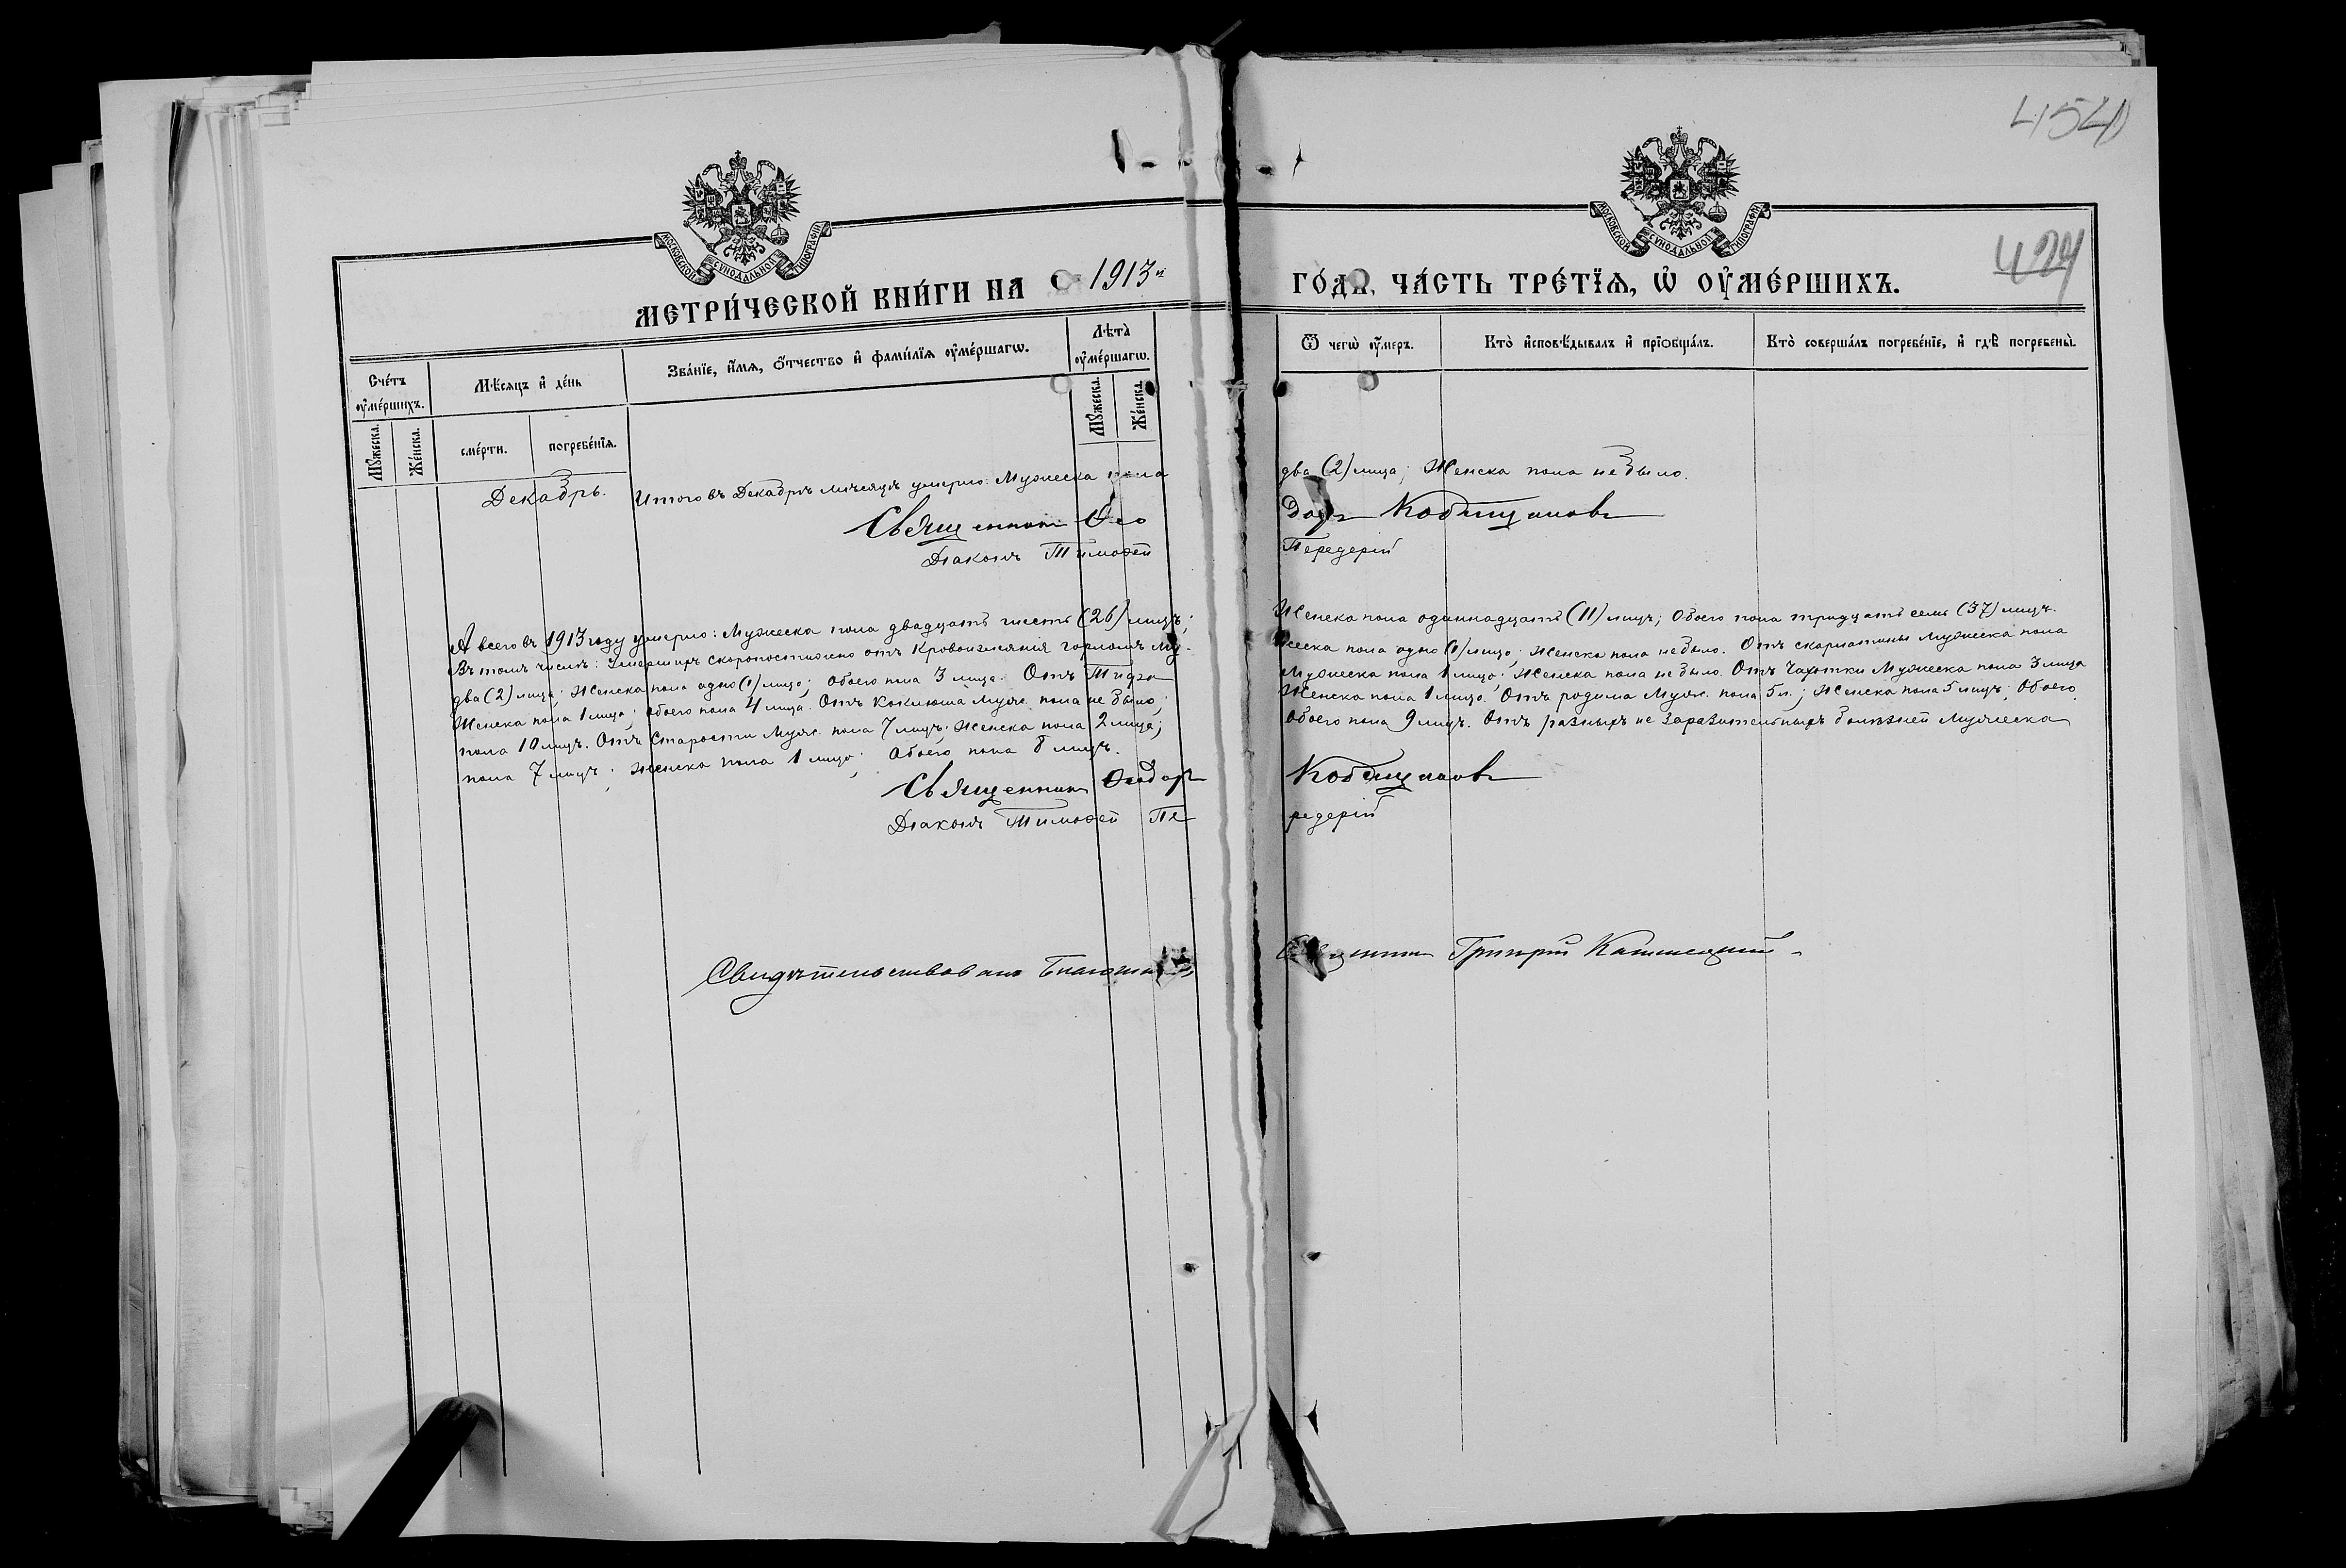 454
424
МОСКОВСКОЙ СѴНОДАЛЬНОЙ ТИПОГРАФІИ
МОСКОВСКОЙ СѴНОДАЛЬНОЙ ТИПОГРАФІИ
МЕТРИ́ЧЕСКОЙ КНИ́ГИ НА 1913й ГО́ДЪ, ЧА́СТЬ ТРЕ́ТЇѦ, Ѡ҆ ОУ҆МЕ́РШИХЪ.
Сче́тъ оу҆ме́ршихъ.
Мꙋ́жеска.
Же́нска.
Мѣ́сяцъ и҆ де́нь
сме́рти.
погребе́нїѧ.
Зва́нїе, и҆́мѧ, ѻ҆́тчество и҆ фами́лїѧ оу҆ме́ршагѡ.
Лѣ̑та оу҆ме́ршагѡ.
Мꙋ́жеска.
Же́нска.
Ѿ чегѡ̀ оу҆́меръ.
Кто̀ и҆сповѣ́дывалъ и҆ прїѻбща́лъ.
Кто̀ соверша́лъ погребе́нїе, и҆ гдѣ̀ погребены̀.
Декабрь. Итого въ Декабрѣ мѣсяцѣ умерло: Мужеска пола два (2) лица; Женска пола не было.
Священникъ Ѳеодоръ Кобищановъ
Діаконъ Тимоѳей Передерій
А всего въ 1913 году умерло: Мужеска пола двадцать шесть (26) лицъ; Женска пола одиннадцать (11) лицъ; Обоего пола тридцать семь (37) лицъ.
Въ томъ числѣ: Умершихъ скоропостижно отъ Кровоизліянія горломъ Мужеска пола одно (1) лицо; Женска пола не было. Отъ скарлатины Мужеска пола
два (2) лица; Женска пола одно (1) лицо; Обоего пола 3 лица. Отъ Тифа Мужеска пола 1 лицо; Женска пола не было. Отъ Чахотки Мужеска пола 3 лица
Женска пола 1 лицо; обоего пола 4 лица. Отъ Коклюша Муж. пола не было; Женска пола 1 лицо. Отъ родима Муж. пола 5 л.; Женска пола 5 лицъ; Обоего
пола 10 лицъ. Отъ Старости Муж. пола 7 лицъ; Женска пола 2 лица; Обоего пола 9 лицъ. Отъ разныхъ не заразительныхъ болѣзней Мужеска
пола 7 лицъ; Женска пола 1 лицо; Обоего пола 8 лицъ.
Священникъ Ѳеодоръ Кобищановъ
Діаконъ Тимоѳей Передерій
Свидѣтельствовалъ Благочинный Священникъ Григорій